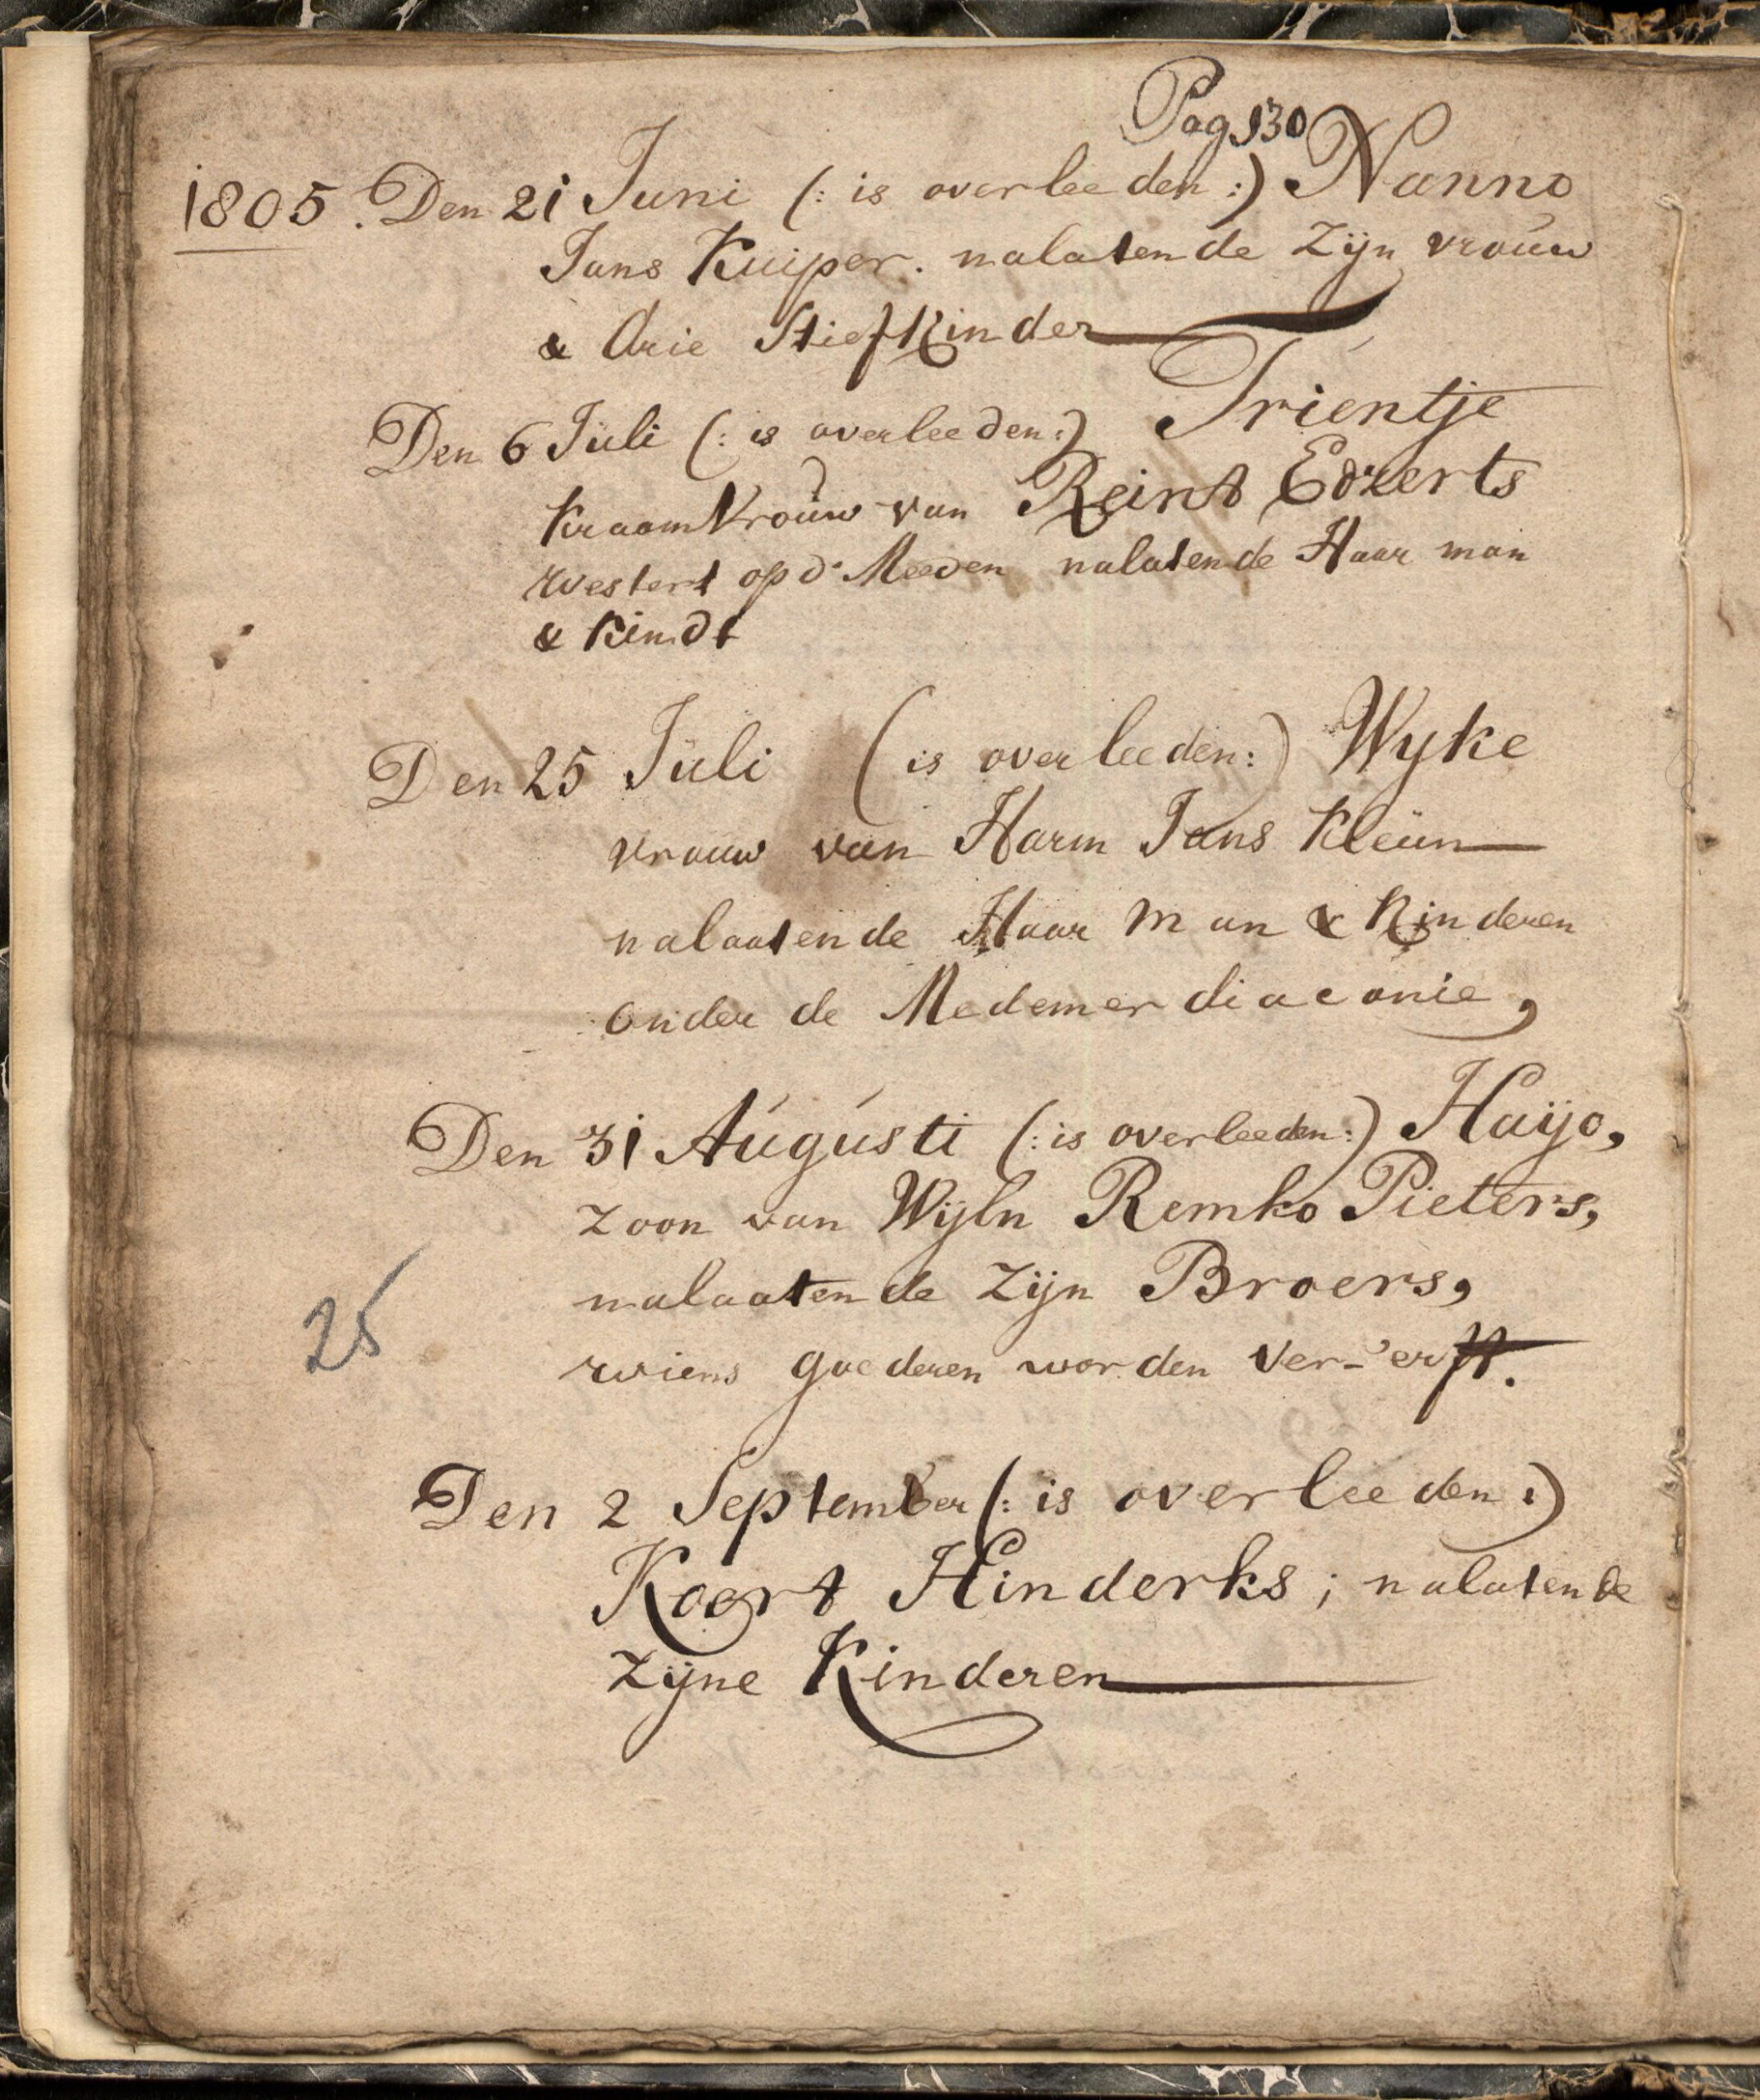 Pag 130
1805. Den 21 Juni (: is overleeden :) Nanno
Jans Kuiper. nalatende Zijn vrouw
& Drie Stiefkinder
Den 6 Juli (: is overleeden :) Trientje
KraamVrouw van Reint Edzerts
Westert op d' Meeden nalatende Haar man
& Kindt
Den 25 Juli (is overleeden :) Wyke
vrouw van Harm Jans Kleün
nalaatende Haar Man & Kinderen
onder de Medemer diaconie,
Den 31 Augusti (: is overleeden :) Haijo,
Zoon van Wijln Remko Pieters,
nalaatende Zijn Broers,
25
wiens goederen worden Ver-'erft.
Den 2 September (: is overleeden :)
Koert Hinderks ; nalatende
Zijne Kinderen